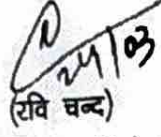 24/03
(रवि चन्द)